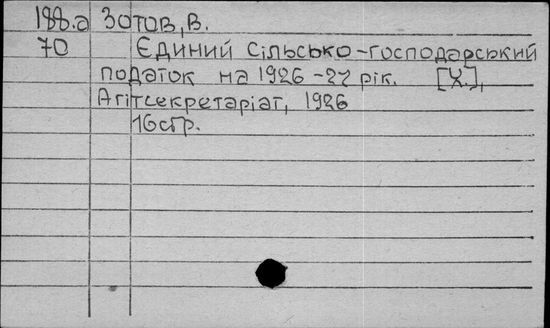 188.а Зотов, В.
70 Єдиний сільсько-господарський
податок на 1926-27 рік. [Х.],
Агітсекретаріат, 1926
16стр.